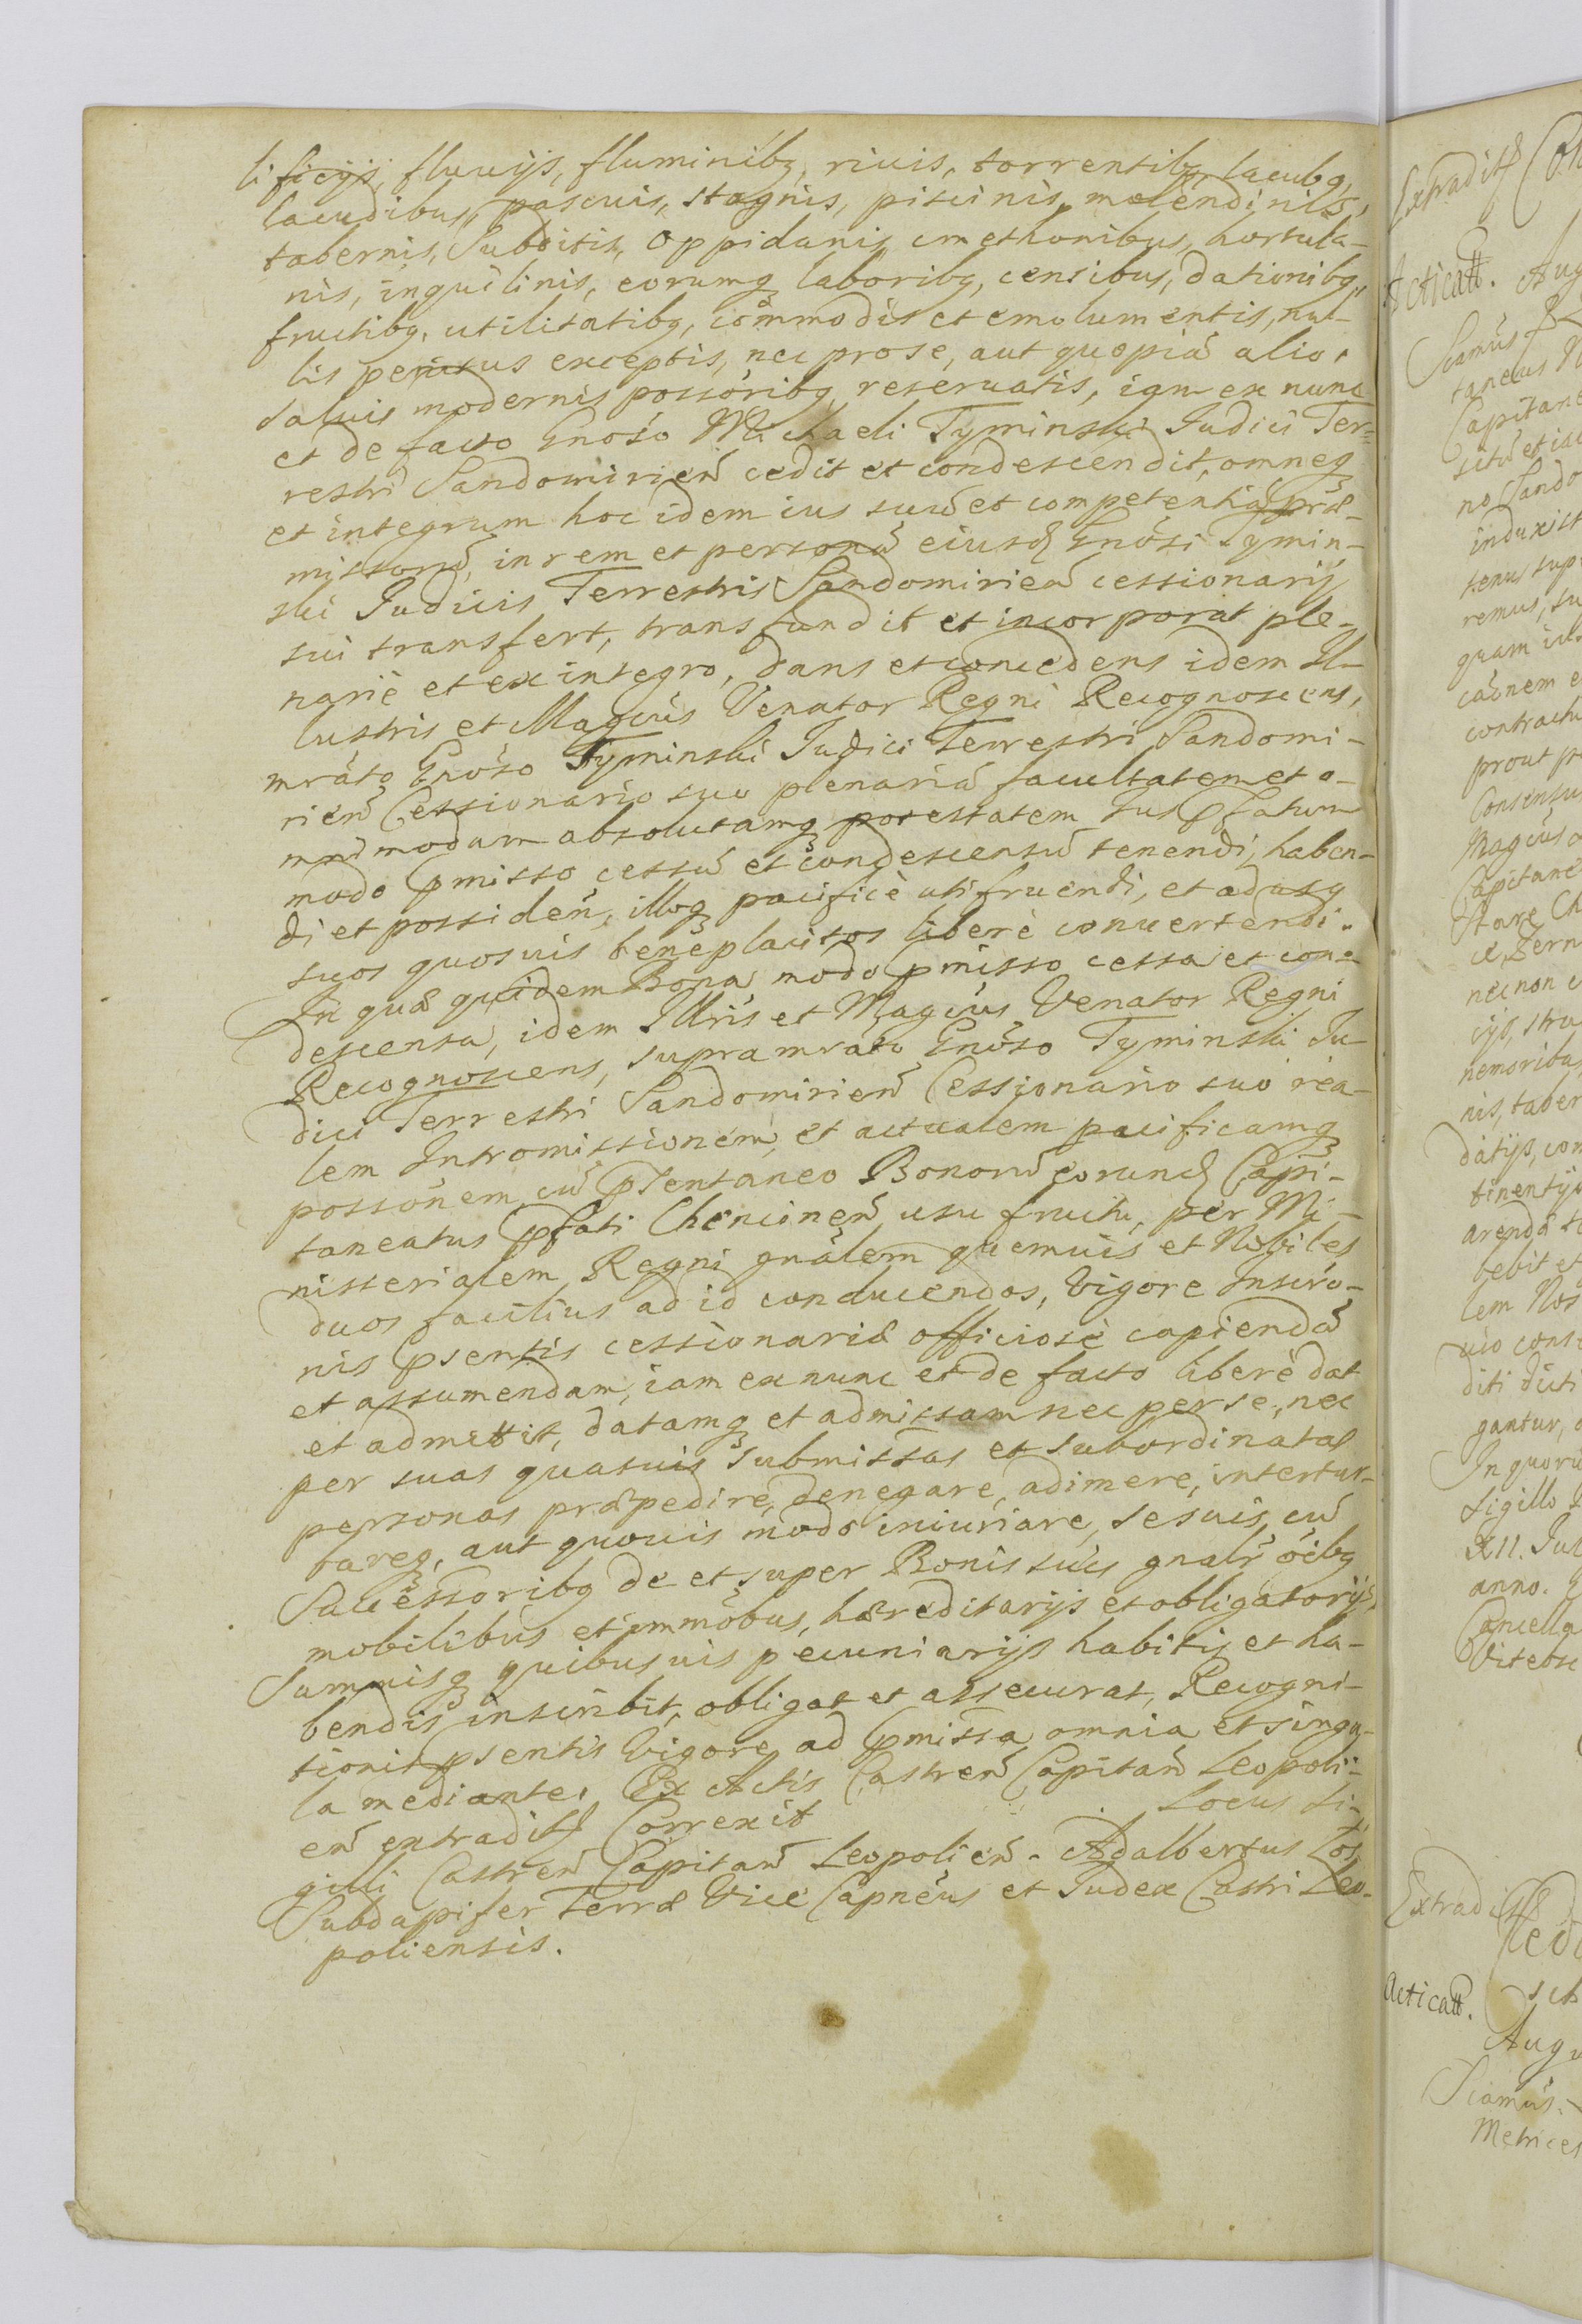 lificijs, fluuijs, fluminibq, riuis, torrentibq, lacubq,
lacudibus, pascuis, stagnis, piscinis, molendinis,
tabernis, Subditis, Oppidanis, cmethonibus, hortula-
nis, inquilinis, eorumq laboribq, censibus, dationibq,
fructibq, utilitatibq, commodis et emolumentis, nul-
lis penitus exceptis, nec pro se, aut quopiā alio,
saluis modernis possoribq, reseruatis, iam ex nunc
et de facto Gnoso Michaeli Tyminski Iudici Ter-
restri Sandomirien̄ cedit et condescendit, omneq
et integrum hoc idem ius suū et competentiā præ-
missorū, in rem et personā eiusd Gnosi Tymin-
ski Iudicis Terrestris Sandomirien̄ cessionarij
sui transfert, transfundit et incorporat ple-
nariè et ex integro, dans et concedens idem Il-
lustris et Magcus Venator Regni Recognoscens,
mrato Gnoso Tyminski Iudici Terrestri Sandomi-
rien̄ Cessionario suo plenariā facultatem et o-
mnimodam absolutamq potestatem Ius pfatum
modo pmisso cessū et condescensū tenendi, haben-
di et possiden̄, illoq pacificè utifruendi, et ad usq
suos quosuis beneplacitos liberè conuertendi.
In quæ quidem Bona modo pmisso cessa et con-
descensa, idem Illris et Magcus Venator Regni
Recognoscens, supramrato Gnoso Tyminski Iu-
dici Terrestri Sandomirien̄ Cessionario suo rea-
lem Intromissionem, et actualem pacificamq
possonem, cū psentaneo Bonorū eorund Capi-
taneatus pfati Chencinen̄ usufructu, per Mi-
nisterialem Regni gnalem quemuis et Nobiles
duos facilius ad id conducendos, Vigore Inscro-
nis psentis cessionariæ officiosè capiendā
et assumendam, iam ex nunc et de facto liberè dat
et admittit, datamq et admissam nec per se, nec
per suas quasuis submissas et subordinatas
personas præpedire, denegare, adimere, intertur-
bareq, aut quouis modo iniuriare, se suis, cū
Successoribq de et super Bonis suis gnalr oibq
mobilibus et immobus, hæreditarijs et obligatorijs,
Summisq quibusuis pecuniarijs habitis et ha-
bendis inscribit, obligat et assecurat, Recogni-
tionis psentis Vigore ad pmissa omnia et singu-
la mediante. Ex Actis Castren̄ Capitan̄ Leopoli-
en̄ extradit Correxit Locus Si-
gilli Castren̄ Capitan̄ Leopolien̄. Adalbertus Łos
Subdapifer Terræ Vice Capneus et Iudex Castri Leo-
poliensis.
Extradit
Acticatt. Aug
Scamus
taneus
Capitane
situ et
no Sando
induxist
tenus sup
remus, su
quam
contractu
prout pr
Consensu
Magcus
Capitane
Stare Ch
nec non
nemoribus
nis, taber
datijs, con
tinentijs
arenda
bebit et
lem Nos
uio cons
diti dicti
gantur,
In quoru
sigillo
XII. Jul
anno.
Cancella
Vitebsc
Extradit
Acticatt.
Augu
Scamus.
Metrices